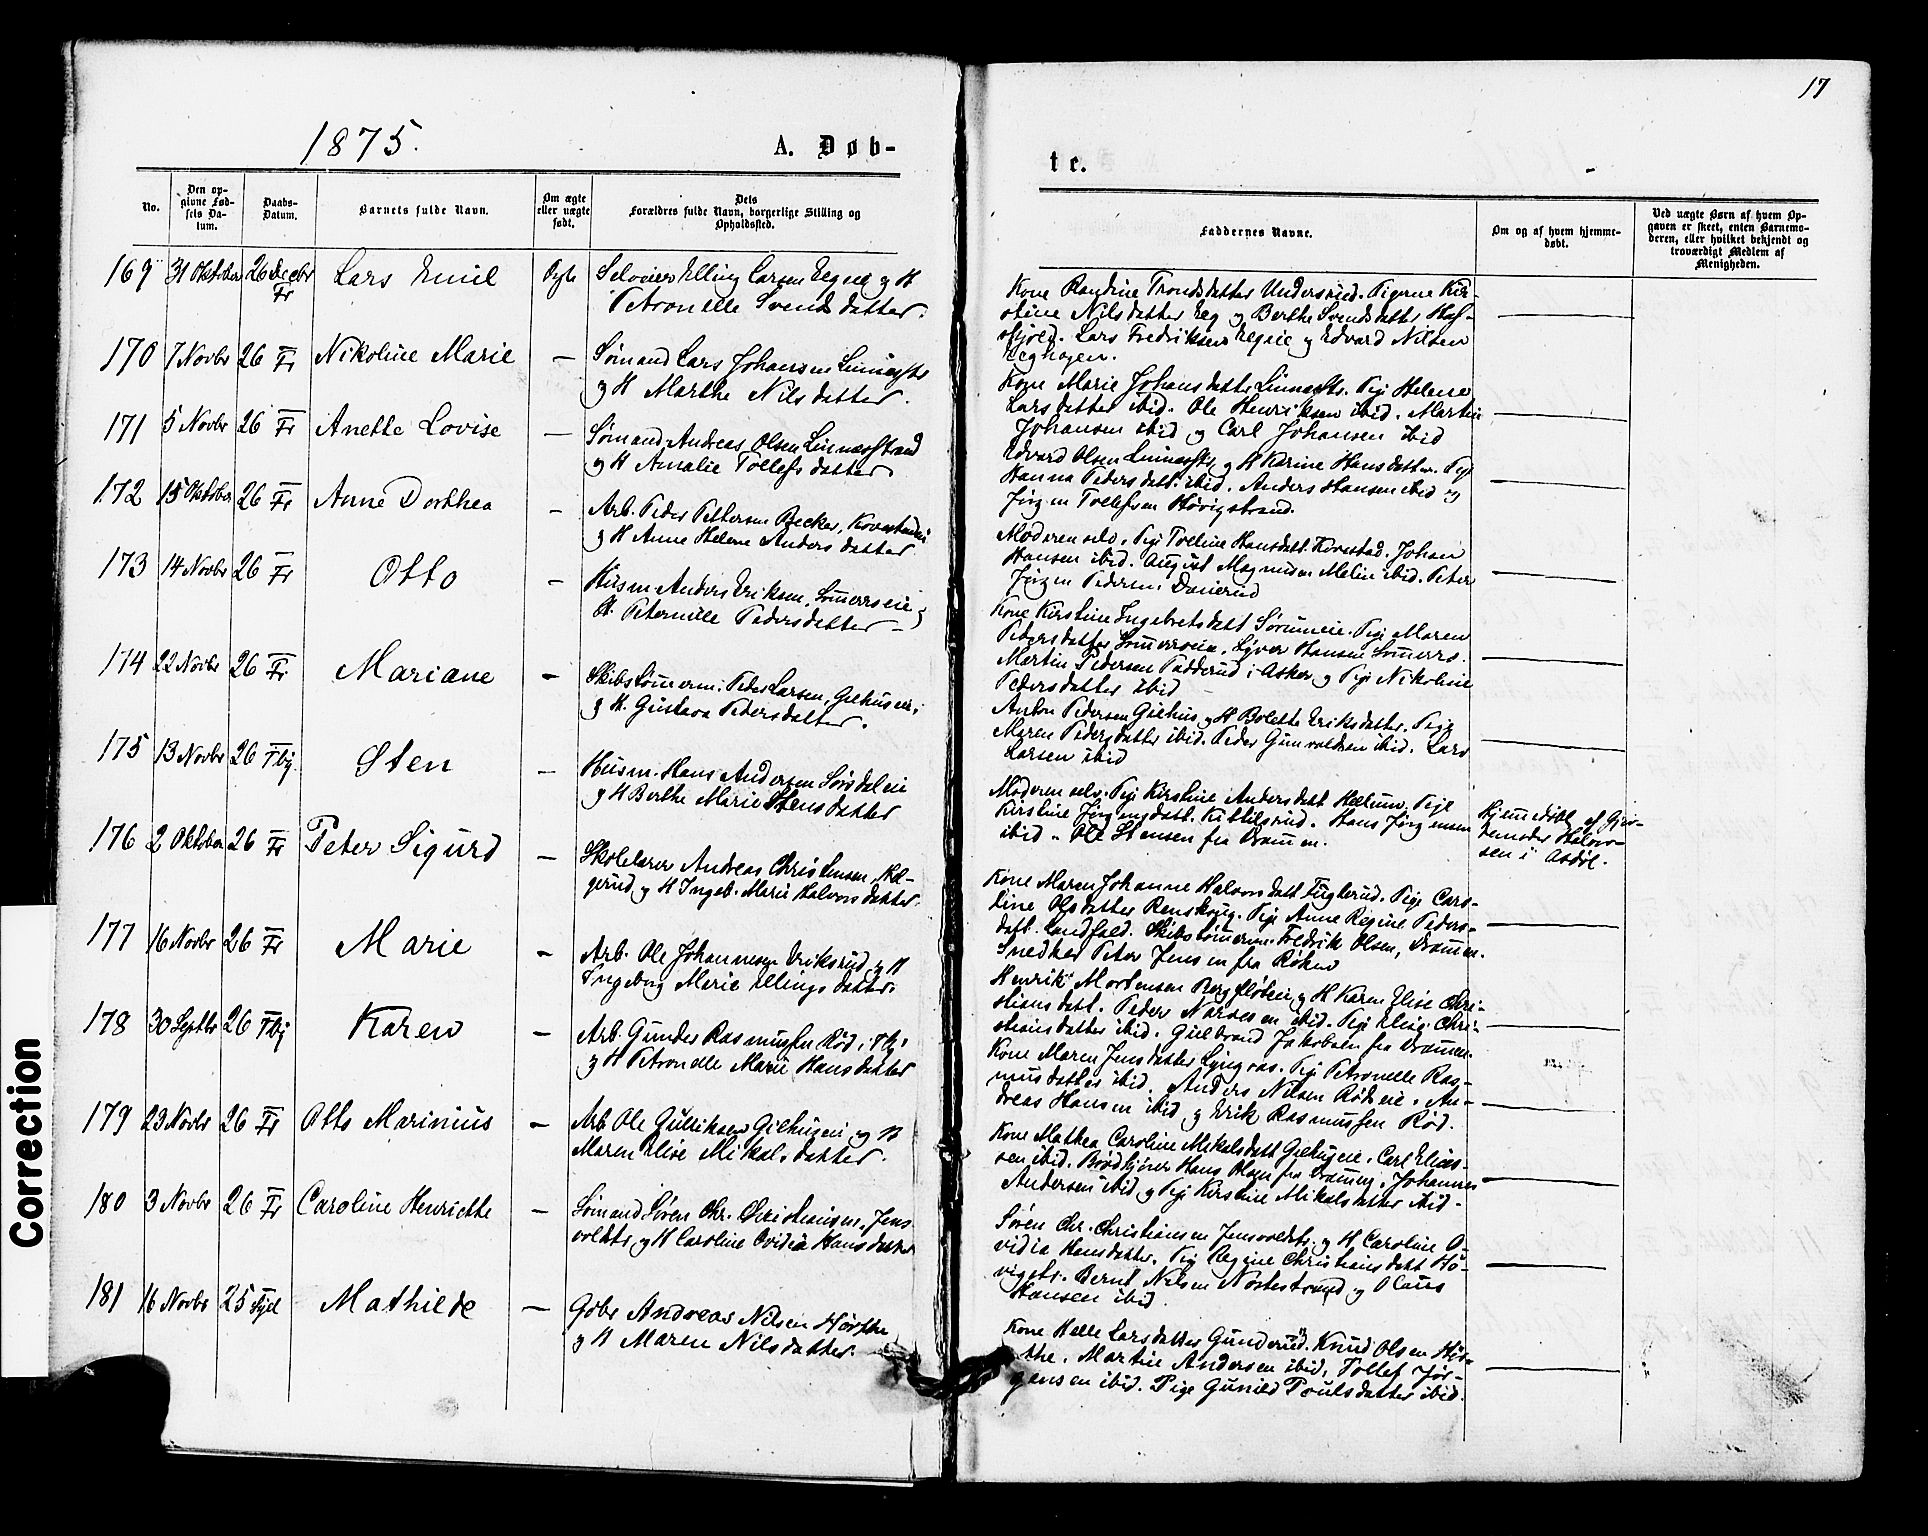 17
1875.
A. Døb-
te.
No.
Den op-
givne Fød-
sels Da-
tum.
Daabs-
Datum.
Barnets fulde Navn.
Om ægte
eller uægte
født.
Dets
Forældres fulde Navn, borgerlige Stilling og
Opholdssted.
Faddernes Navne.
Om og af hvem hjemme-
døbt.
Ved uægte Børn af hvem Op-
gaven er skeet, enten Barnemo-
deren, eller hvilket bekjendt og
troværdigt Medlem af
Menigheden.
169 31 Oktober 26 Decbr Fr Lars Emil Ægte
Selveier Elling Larsen og H
Petronelle Svendsdatter.
Kone Trondsdatter Undersrud. Pigerne Kir-
stine Nilsdatter Eeg og Berthe Svendsdatter
Lars Fredriksen og Edvard Nilsen
170 7 Novbr 26 Fr Nikoline Marie —
Sømand Lars Johansen
og H Marthe Nilsdatter.
Kone Marie Johansdatter Pige Helene
Larsdatter ibid. Ole Henriksen ibid. Martin
Johansen ibid og Carl Johansen ibid
171 5 Novbr 26 Fr Anette Lovise —
Sømand Andreas Olsen
og H Amalie Tollefsdatter
Edvard Olsen og H Karine Hansdatter. Pige
Hanna Pedersdatt. ibid. Anders Hansen ibid og
Jørgen Tollefsen Høvigstrand.
172 15 Oktober 26 Fr Anne Dorthea —
Arb. Peder Pettersen Becker,
og H Anne Helene Andersdatter
Moderen selv. Pige Hansdatt. Kovestad. Johan
Hansen ibid. August Magnusen Melin ibid. Peter
Jørgen Pedersen
173 14 Novbr 26 Fr Otto —
Husm. Anders Eriksen, og
H. Peternille Pedersdatter
Kone Kirstine Ingebretsdatt Pige Maren
Pedersdatter Hansen
Martin Pedersen i Asker og Pige Nikoline
Pedersdatter ibid
174 22 Novbr 26 Fr Mariane —
Skibstømerm. Peder Larsen, Gilhuseie,
og H. Gustava Pedersdatter.
Anton Pedersen Gilhus og H Bolette Eriksdatter. Pige
Maren Pedersdatter ibid. Peder Gunvaldsen ibid. Lars
Larsen ibid
175 13 Novbr 26 Tbj. Sten —
Husm. Hans Andersen
og H Berthe Marie Stensdatter
Moderen selv. Pige Kirstine Andersdatt Pige
Kirstine Jørgensdatt. Kittilsrud. Hans Jørgensen
ibid. Ole Stensen fra Dramen.
Hjemedøbt af
Halvor-
sen i Asdøl.
176 2 Oktober 26 Fr Peter Sigurd —
Skolelærer Andreas Christensen,
og H Ingeb. Marie Halvorsdatter.
Kone Maren Johanne Halvorsdatt Fuglerud. Pige Caro-
line Olsdatter Renskoug. Pige Anne Regine Peders-
datt. Landfald. Skibstømerm. Fredrik Olsen, Dramen.
Snedker Peter Jensen fra Røken
177 16 Novbr 26 Fr Marie —
Arb. Ole Johannesen Eriksrud og H
Ingeborg Marie Ellingsdatter.
Henrik Mortensen og H Karen Elise Chri-
stiansdatt. Peder ibid. Pige Elise Chri-
stiansdatter ibid. Gulbrand Jakobsen fra Dramen.
178 30 Septbr 26 Tbj Karen —
Arb. Gunder Rasmussen Rød i Tbj.
og H Petronelle Marie Hansdatter
Kone Maren Jensdatter Lyngaas. Pige Petronelle Ras-
musdatter ibid. Anders Nilsen Rødseie. An-
dreas Hansen ibid og Erik Rasmussen Rød.
179 23 Novbr 26 Fr Otto Marinius —
Arb Ole Gulliksen Gilhuseie og H
Maren Elise Mikalsdatter.
Kone Mathea Caroline Mikalsdatt Gilhuseie. Carl Elias-
sen ibid. Brødkjører Hans Olsen fra Dramen. Johannes
Andersen ibid og Pige Kirstine Mikalsdatter ibid.
180 3 Novbr 26 Fr Caroline Henriette —
Sømand Søren Chr. Christiansen, Jens
voldstr og H Caroline Ovidia Hansdatter
Søren Chr. Christiansen Jensvoldstr. og H. Caroline O-
vidia Hansdatter. Pige Regine Christiansdatt Hø-
vigstr. Bernt Nilsen Nostestrand og Olaus
Hansen ibid.
181 16 Novbr 25 Sjd Mathilde —
Gdbr Andreas Nilsen Hørthe
og H Maren Nilsdatter.
Kone Helle Larsdatter Gunderud. Knud Olsen Hør-
the. Martin Andersen ibid. Tollef Jør-
gensen ibid. Pige Gunild Poulsdatter ibid.
Correction